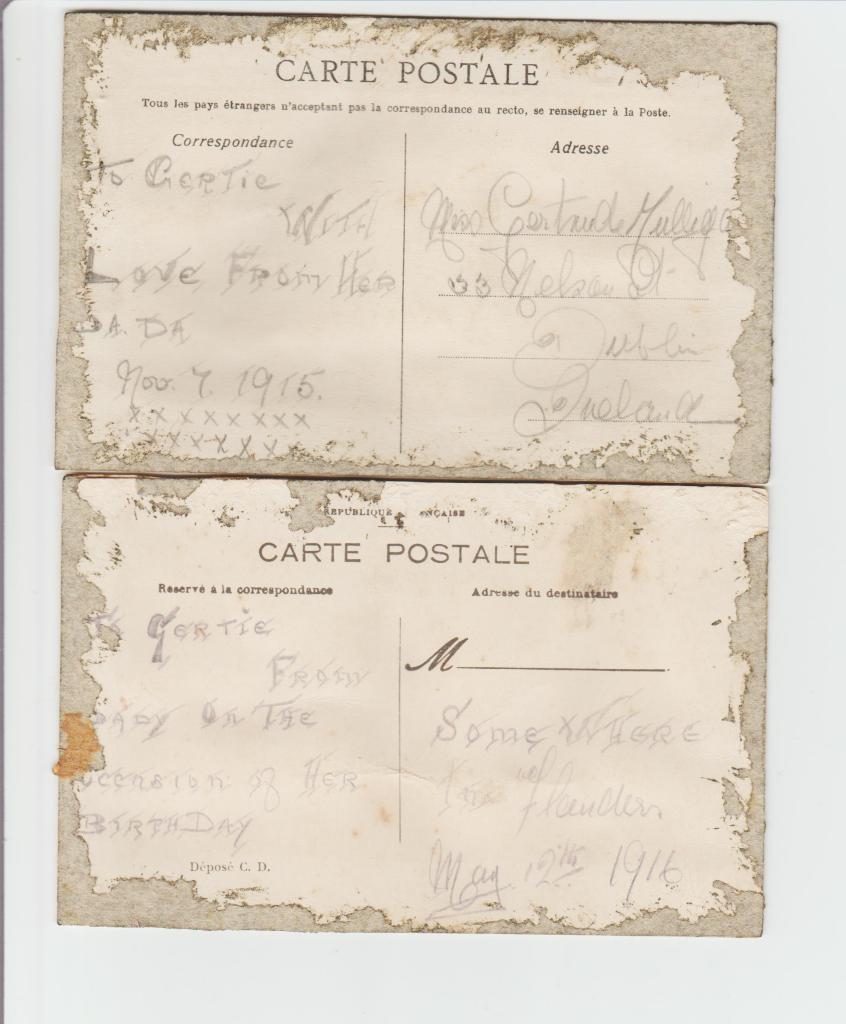 CARTE POSTALE
Tous les pays étrangers n'acceptent pas la correspondance au recto, se renseigner à la Poste.
Correspondance
To Gertie
With
Love From Her
DA. DA
Nov. 7. 1915.
x x x x x x x x
x x x x x x x
Adresse
Miss Gertrude Mulliga
33 Nelson St
Dublin
Ireland
RÉPUBLIQUE NÇAISE
CARTE POSTALE
Réservé à la correspondance
To Gertie
From
DADY On The
occasion of Her
BirthDay
Déposé C. D.
Adresse du destinataire
M
Some Where
In Flanders
May 12th 1916